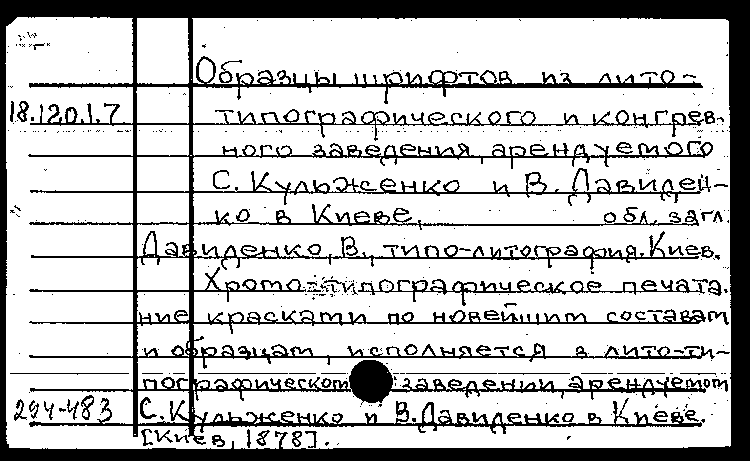 Образцы шрифтов из лито-
18.120.1.7 типографического и конгрев-
ного заведения, арендуемого
С. Кульженко и В. Давиден-
ко в Киеве, обл. загл.
Давиденко, В., типо-литография. Киев.
Хромо-типографическое печата-
ние красками по новейшим составам
и образцам, исполняется в лито-ти-
пографическом заведении, арендуемом
294-483 С. Кульженко и В. Давиденко в Киеве.
[Киев, 1878].